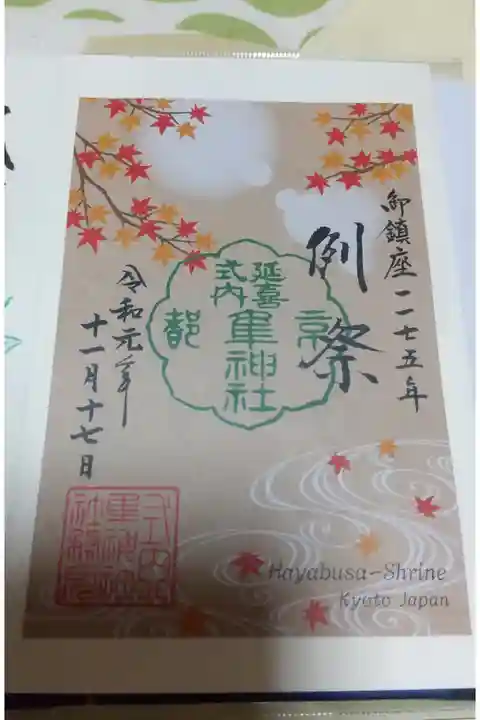 御鎮座一一七五年
例祭
延喜
式内
隼神社
京
都
令和元年
十一月十七日
Hayabusa-Shrine
Kyoto Japan